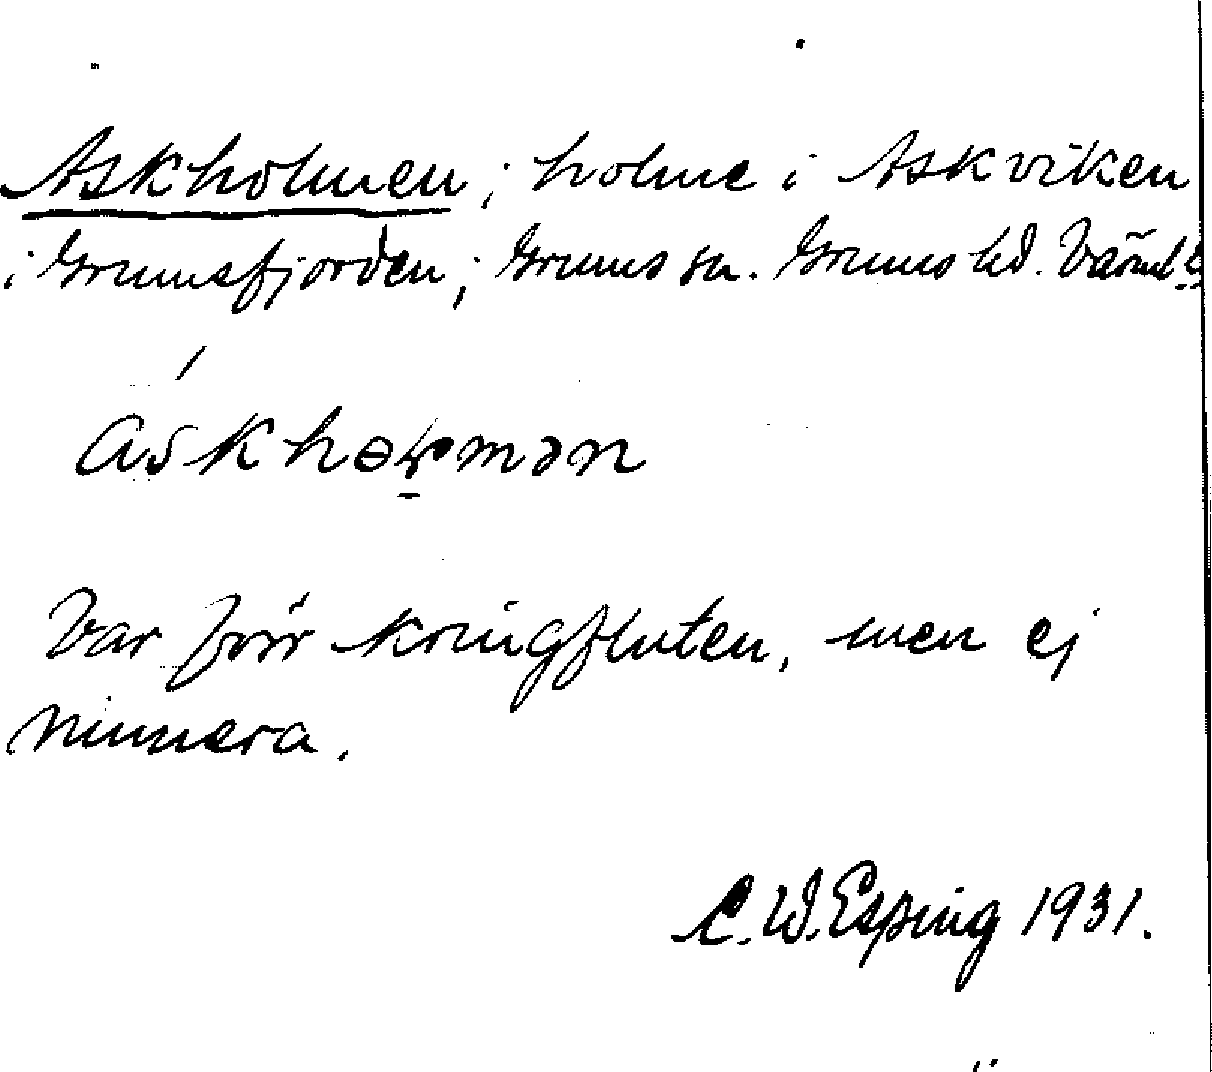 Askholmen; holme i Askviken
i Grumsfjorden; Grums sn. Grums hd. Värml.
Var förr kringfluten, men ej
numera.
C. W. Esping 1931.